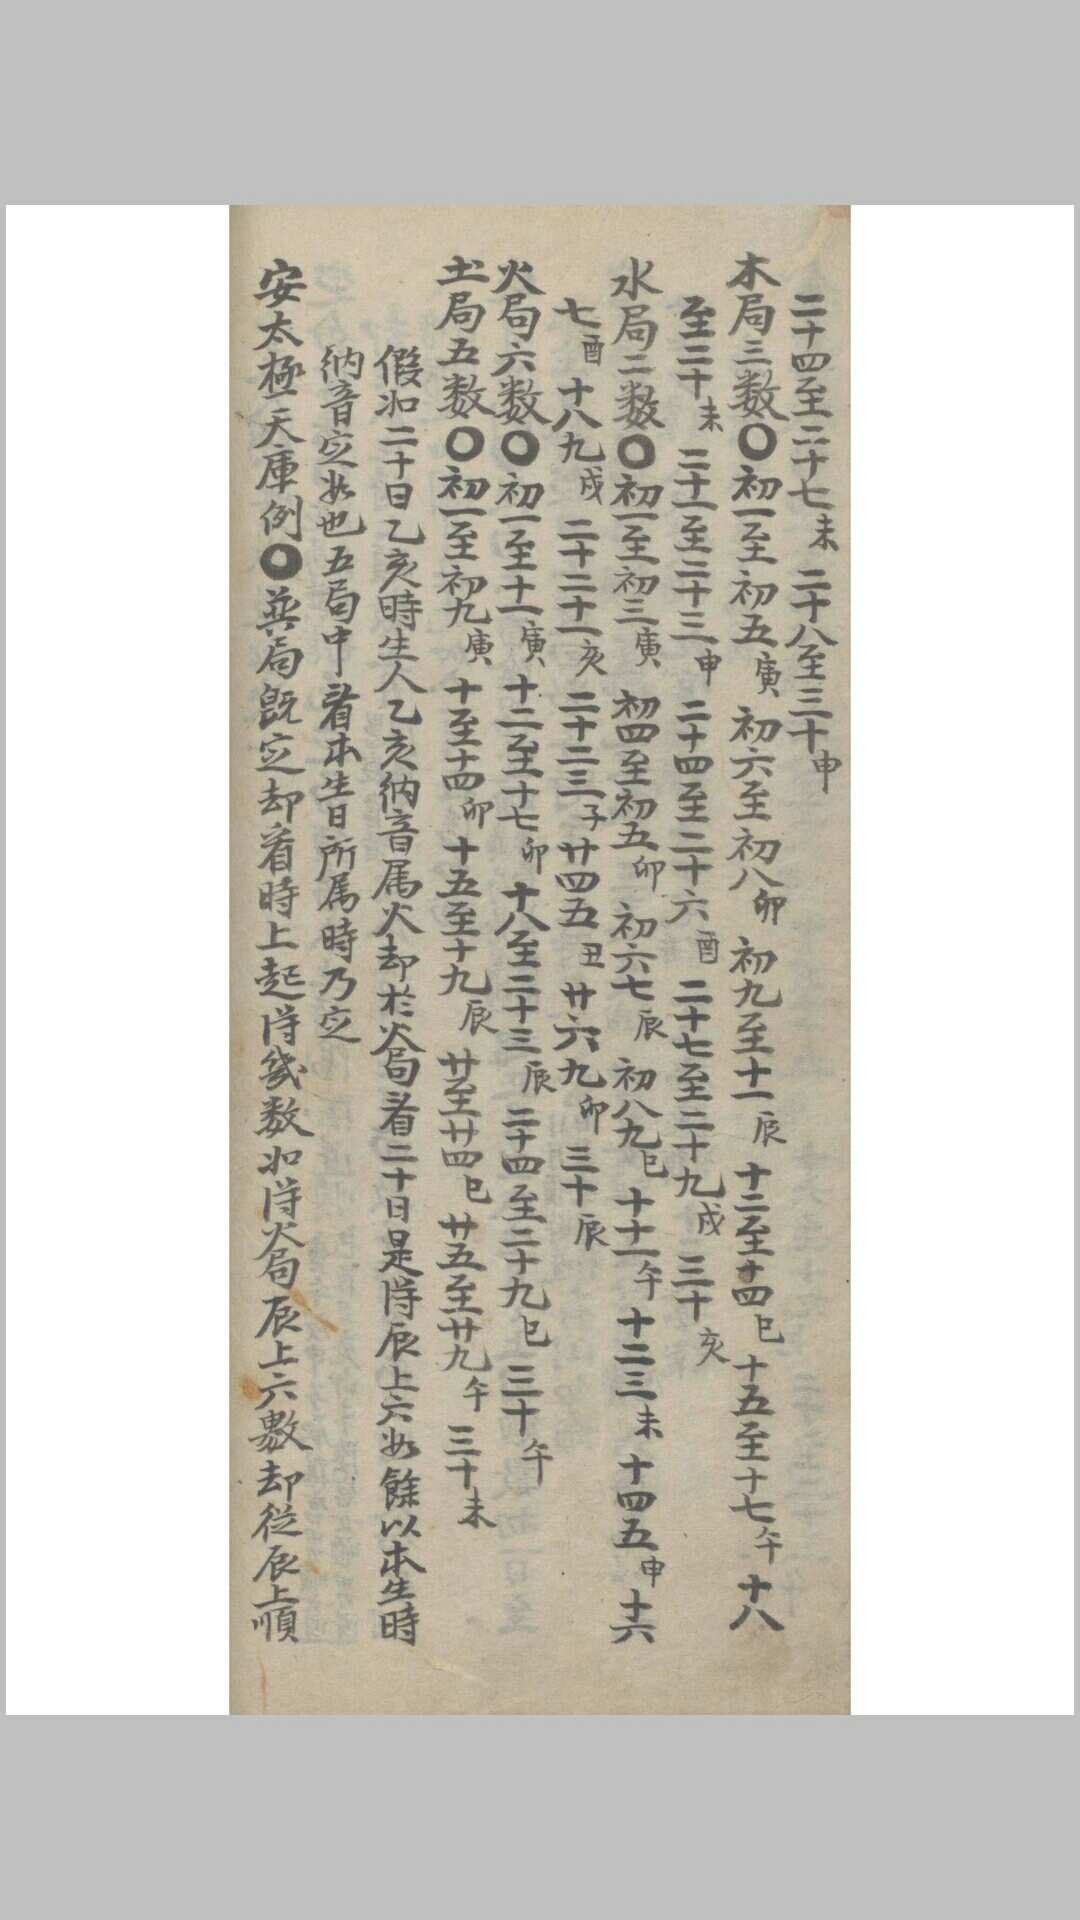 二十四至二十七未 二十八至三十申
木局三数〇初一至初五寅 初六至初八卯 初九至十一辰 十二至十四巳 十五至十七午 十八
至二十未 二十一至二十三申 二十四至二十六酉 二十七至二十九戌 三十亥
水局二数〇初一至初三寅 初四至初五卯 初六七辰 初八九巳 十十一午 十二三未 十四五申 十六
七酉 十八九戌 二十二十一亥 二十二三子 廿四五丑 廿六九卯 三十辰
火局六数〇初一至十一寅 十二至十七卯 十八至二十三辰 二十四至二十九巳 三十午
土局五数〇初一至初九寅 十至十四卯 十五至十九辰 廿至廿四巳 廿五至廿九午 三十未
假如二十日乙亥時生人乙亥納音属火却於火局看二十日是得辰上六如餘以本生時
納音定如也五局中看本生日所属時乃定
安太極天庫例〇英局既定却看時上起得幾数如得火局辰上六數却從辰上順